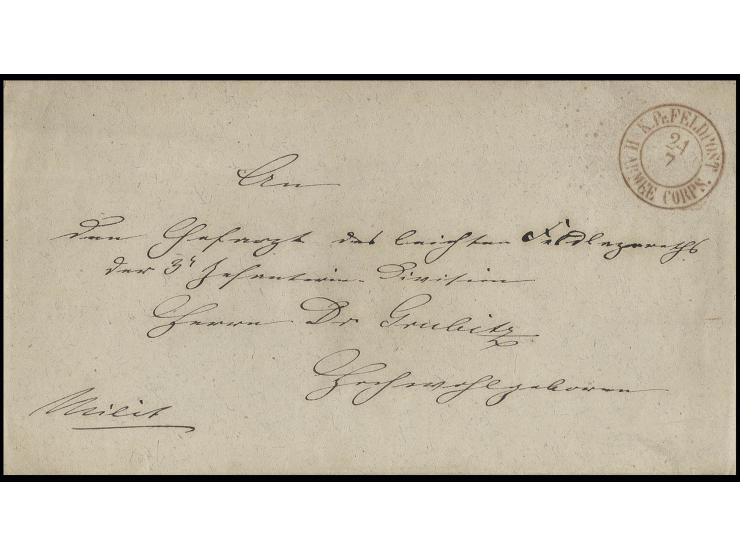 K. PR. FELDPOST
II ARMEE CORPS.
24
7
An
den Chefarzt des leichten Feldlazareths
der 3t Infanterie-Division
Herrn Dr Grubitz
Hochwohlgeboren
Milit